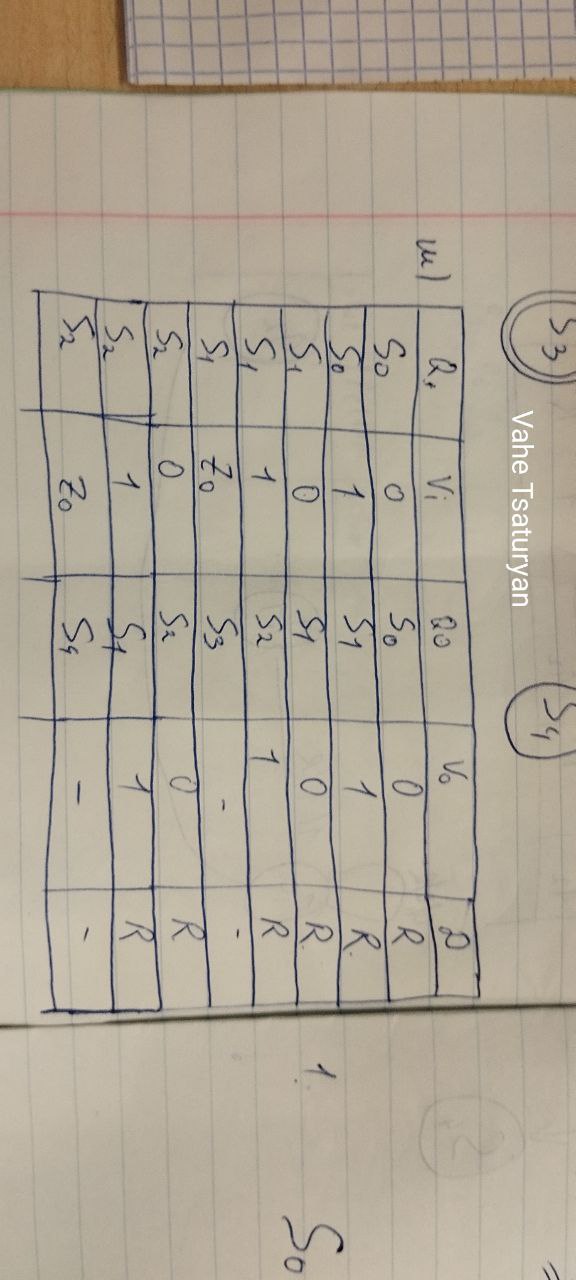 S3 S4
Vahe Tsaturyan
Vi Q0 V0 D
S0 0 S0 0 R
S0 1 S1 1 R.
S1 0 S1 0 R
1. S0
S1 1 S2 1 R
S1 Z0 S3 - -
S2 0 S2 0 R
S2 1 S1 1 R
S2 Z0 S4 - -